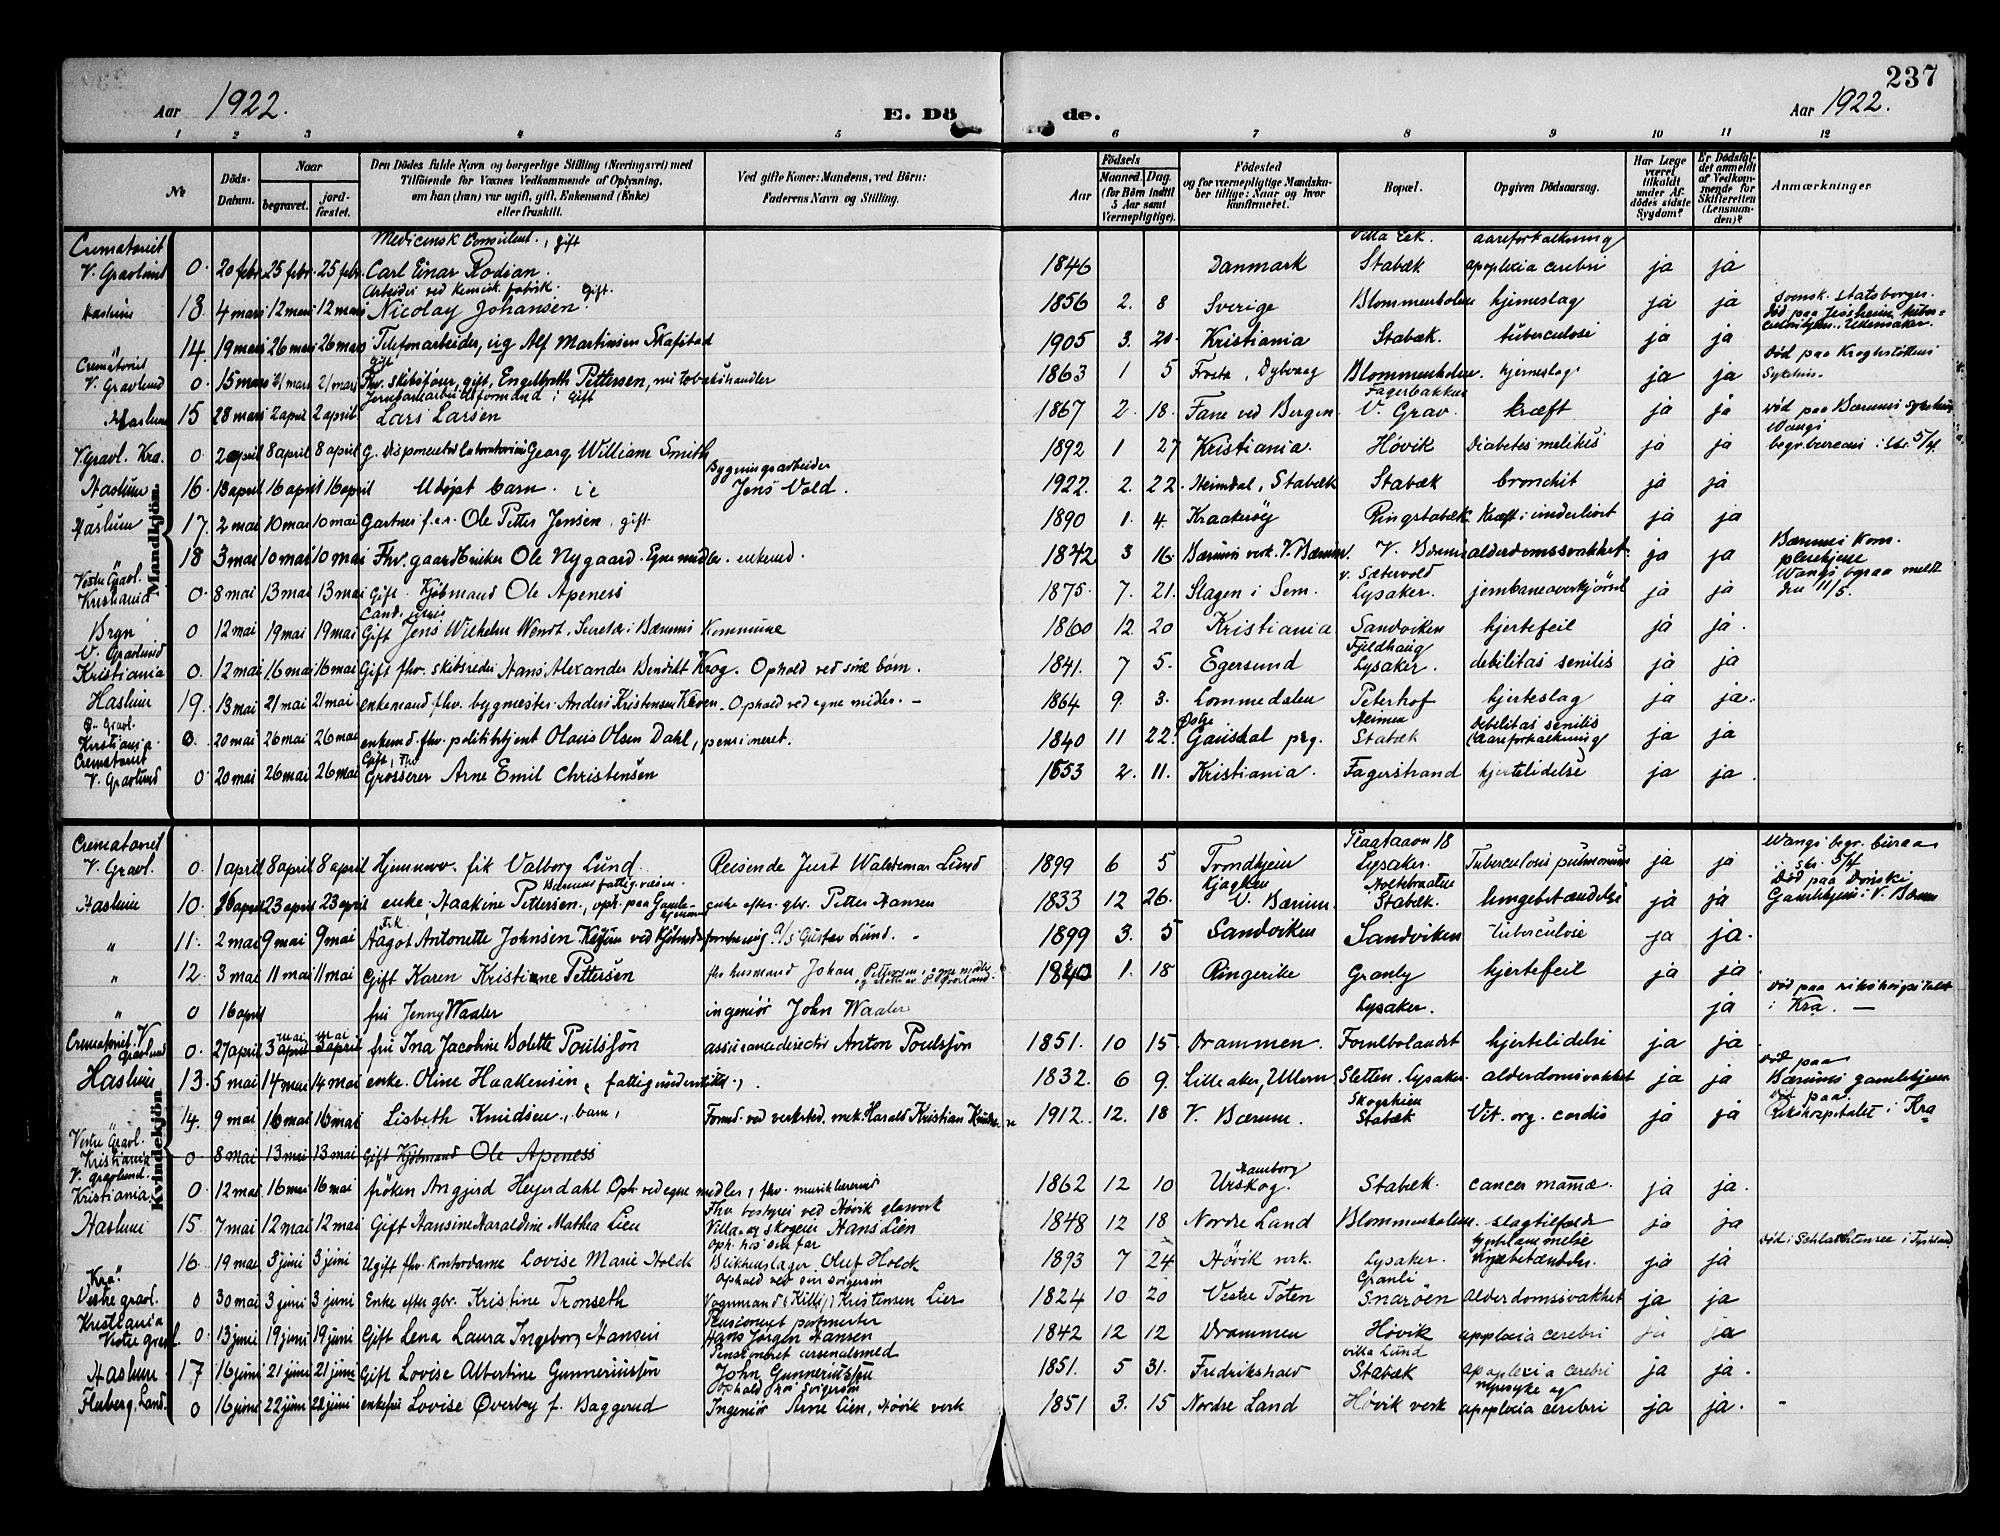 237
Aar 1922. E. Dö de. Aar 1922.
1 2 3 4 5 6 7 8 9 10 11 12
No
Döds-Datum.
Naar
begravet. jordfæstet.
Den Dödes fulde Navn og borgerlige Stilling (Næringsvei) med
Tilföiende for Voxnes Vedkommende af Oplysning,
om han (hun) var ugift, gift, Enkemand (Enke)
eller fraskilt.
Ved gifte Koner: Mandens, ved Börn:
Faderens Navn og Stilling.
Födsels
Aar
Maaned. Dag.
(for Börn indtil
5 Aar samt
Værnepligtige).
Födested
og for værnepligtige Mandska-
ber tillige: Naar og hvor
konfirmeret.
Bopæl.
Opgiven Dödsaarsag.
Har Læge
været
tilkaldt
under Af-
dödes sidste
Sygdom?
Er Dödsfal-
det anmeldt
af Vedkom-
mende for
Skifteretten
(Lensman-
den)?
Anmærkninger
Mandkjön.
Crematoriet Medicinsk Consulent., gift Villa Eek. aareforkalkning
V. Gravlund 0. 20 febr 25 febr 25 febr Carl Einar Rodian. 1846 Danmark Stabæk apoplexia cerebri ja ja
Arbeider ved kemisk fabrik. Gift.
Haslum 13 4 mars 12 mars 12 mars Nicolay Johansen. 1856 2. 8 Sverige Blommenholm hjerneslag ja ja svensk statsborger.
" 14. 19 mars 26 mars 26 mars Telefonarbeider, ug Alf Martinsen Skafstad 1905 3. 20. Kristiania Stabæk. tuberculose ja ja død paa
Crematoriet
V. Gravlund 0. 15 mars 21 mars 21 mars Fhv. skibsfører, gift, Engelbreth Pettersen, nu tobakshandler 1863 1 5 Frosta, Dybvaag Blommenholm. hjerneslag ja ja død paa Kroghstøttens sykehus.
Jernbanearbeidsformand, gift Fagerbakken
Haslum 15 28 mars 2 april 2 april Lars Larsen 1867 2. 18. Fane ved Bergen V. Grav. kræft ja ja død paa Bærums sykehus
V. Gravl. Kra. 0 2 april 8 april 8 april G. Disponent ved Laboratorium Georg William Smith 1892 1 27 Kristiania. Høvik Diabetes melitus ja ja Wangs begr.bureau i Str. 5/4.
Bygningsarbeider
Haslum 16. 13 april 16 april 16 april Udøpt barn. Jens Vold. 1922. 2. 22. Heimdal, Stabæk Stabæk bronchit ja ja
Haslum 17. 2 mai 10 mai 10 mai Gartner f.e.r. Ole Petter Jensen, gift 1890 1. 4. Kraakerøy Ringstabæk. Kræft i underlivet ja ja
18 3 mai 10 mai 10 mai Fhv. gaardbruker Ole Nygaard. Egne midler. enkemd. 1842 3 16. Bærums verk. V. Bærum V. Bærum alderdomssvakhet. ja ja Bærums kom. pleiehjem
Vestre Gravl. v. Sætervold
Kristiania 0. 8 mai 13 mai 13 mai Gift. Kjøbmand Ole Apeness 1875. 7. 21. Slagen i Sem. Lysaker. jernbaneoverkjørsel ja ja Wangs byraa meldt den 11/5.
Cand. juris
Bryn 0 12 mai 19 mai 19 mai Gift Jens Wilhelm Wendt, Secretær i Bærums Kommune 1860 12. 20 Kristiania Sandviken hjertefeil ja ja.
V. Gravlund Fjeldhaug
Kristiania 0. 12 mai 16 mai 16 mai Gift fhv. skibsreder Hans Alexander Bendikt Krog. Ophold ved sine børn. 1841. 7 5. Egersund Lysaker. debilitas senilis ja ja
Haslum 19. 13 mai 21 mai 21 mai enkemand fhv. bygmester Anders Kristensen Kleven. Ophold ved egne midler. - 1864 9. 3. Lommedalen Peterhof hjerteslag ja ja.
Ø. Gravl. Østre Heimen debilitas senilis
Kristiania. 0. 20 mai 26 mai 26 mai enkemd. fhv. politibetjent Olaus Olsen Dahl, pensioneret. 1840 11 22. Gausdal prg. Stabæk (Aareforkalkning) ja ja
Crematoriet Gift, fhv
V. Gravlund 0. 20 mai 26 mai 26 mai Grosserer Arne Emil Christensen 1853 2. 11. Kristiania. Fagerstrand hjertelidelse ja ja.
Kvindekjön
Crematoriet Plagtaaon 18
V. Gravl. 0. 1 april 8 april 8 april Hjemmev. frk Valborg Lund. Reisende Just Waldemar Lund 1899 6 5 Trondhjem Lysaker. Tuberculosis pulmonum ja ja Wangs begr. buraa str. 5/4
Bærums fattigvæsen.
Haslum 10. 16 april 23 april 23 april enke. Haakine Pettersen, oph. paa Gamlehjemmet enke efter gbr. Petter Hansen 1833 12 26. V. Bærum. Stabæk. lungebetændelse ja ja Død paa Dønski Gamlehjem i V. Bærum
Frk
" 11. 2 mai 9 mai 9 mai Aagot Antonette Johnsen Gustav Lund. - 1899 3. 5 Sandviken Sandviken tuberculose ja ja.
" 12. 3 mai 11 mai 11 mai Gift Karen Kristiane Pettersen fhv husmand Johan Pettersen 1840 1. 18 Ringerike Granly hjertefeil ja ja
" 0 16 april fru Jenny Waaler ingeniør John Waaler Lysaker. ja død paa rikshospitalet i Kra. —
Crematoriet. V. Gravlund 0. 27 april 3 mai 3 mai fru Ina Jacobine Bolette Poulsson assurancedirectør Anton Poulsson 1851. 10 15. Drammen. Fornebolandet hjertelidelse ja ja
Haslum 13. 5 mai 14 mai 14 mai enke. Oline Haakensen, (fattigunderstøttet). 1832. 6 9. Lilleaker, Ullern Sletten. Lysaker. alderdomssvakhet ja ja død paa Bærums gamlehjem
Skogsheim
" 14. 9 mai 16 mai 16 mai Lisbeth Knudsen, barn, Formd. ved verksted. mek. Harald Kristian Knudsen 1912. 12. 18 V. Bærum. Stabæk Vit. org. cordis ja ja død paa Rikshospitalet i Kra
Vestre Gravl.
Kristiania 0 8 mai 13 mai 13 mai Gift Kjøbmand Ole Apeness
V. gravlund. Aamborg
Kristiania. 0. 12 mai 16 mai 16 mai frøken Angjerd Heyerdahl Oph. ved egne midler, fhv. musiklærerinde 1862 12 10 Urskog. Stabæk. cancer mamæ ja ja.
Fhv bestyrer ved Høvik glasverk
Haslum 15. 7 mai 12 mai 12 mai Gift Hansine Haraldine Mathea Lien Villa- og skogeier Hans Lien 1848 12 18 Nordre Land Blommenholm. slagtilfælde ja ja
Oph. hos sin far
16. 19 mai 3 juni 3 juni Ugift fhv. kontordame Lovise Marie Holck Blikkenslager Oluf Holck 1893 7 24 Høvik verk. Lysaker. ja ja død i Schlachtensee i Tyskland
Kra. Ophold ved sin svigersøn Granli
Vestre gravl. 0 30 mai 3 juni 3 juni Enke efter gbr. Kristine Tronseth Vognmand (Killi) Kristensen Lier 1824 10 20 Vestre Toten Snarøen alderdomssvakhet ja ja
Kristiania Pensioneret portmester
Vestre gravl. 0. 13 juni 19 juni 19 juni Gift Lena Laura Ingeborg Hansen Hans Jørgen Hansen 1842 12 12 Drammen Høvik apoplexia cerebri ja ja
Pensioneret arsenalsmed villa Lund
Haslum 17 16 juni 21 juni 21 juni Gift Lovise Albertine Gunneriussen John Gunneriussen 1851. 5 31. Fredrikshald Stabæk apoplexia cerebri ja ja.
Ophold hos svigersøn nyresyke og
Fluberg. Land. 0 16 juni 22 juni 22 juni enkefru Lovise Øverby f. Baggerud Ingeniør Arne Lien, Høvik verk 1851 3. 15 Nordre Land Høvik verk apoplexia cerebri ja ja. -